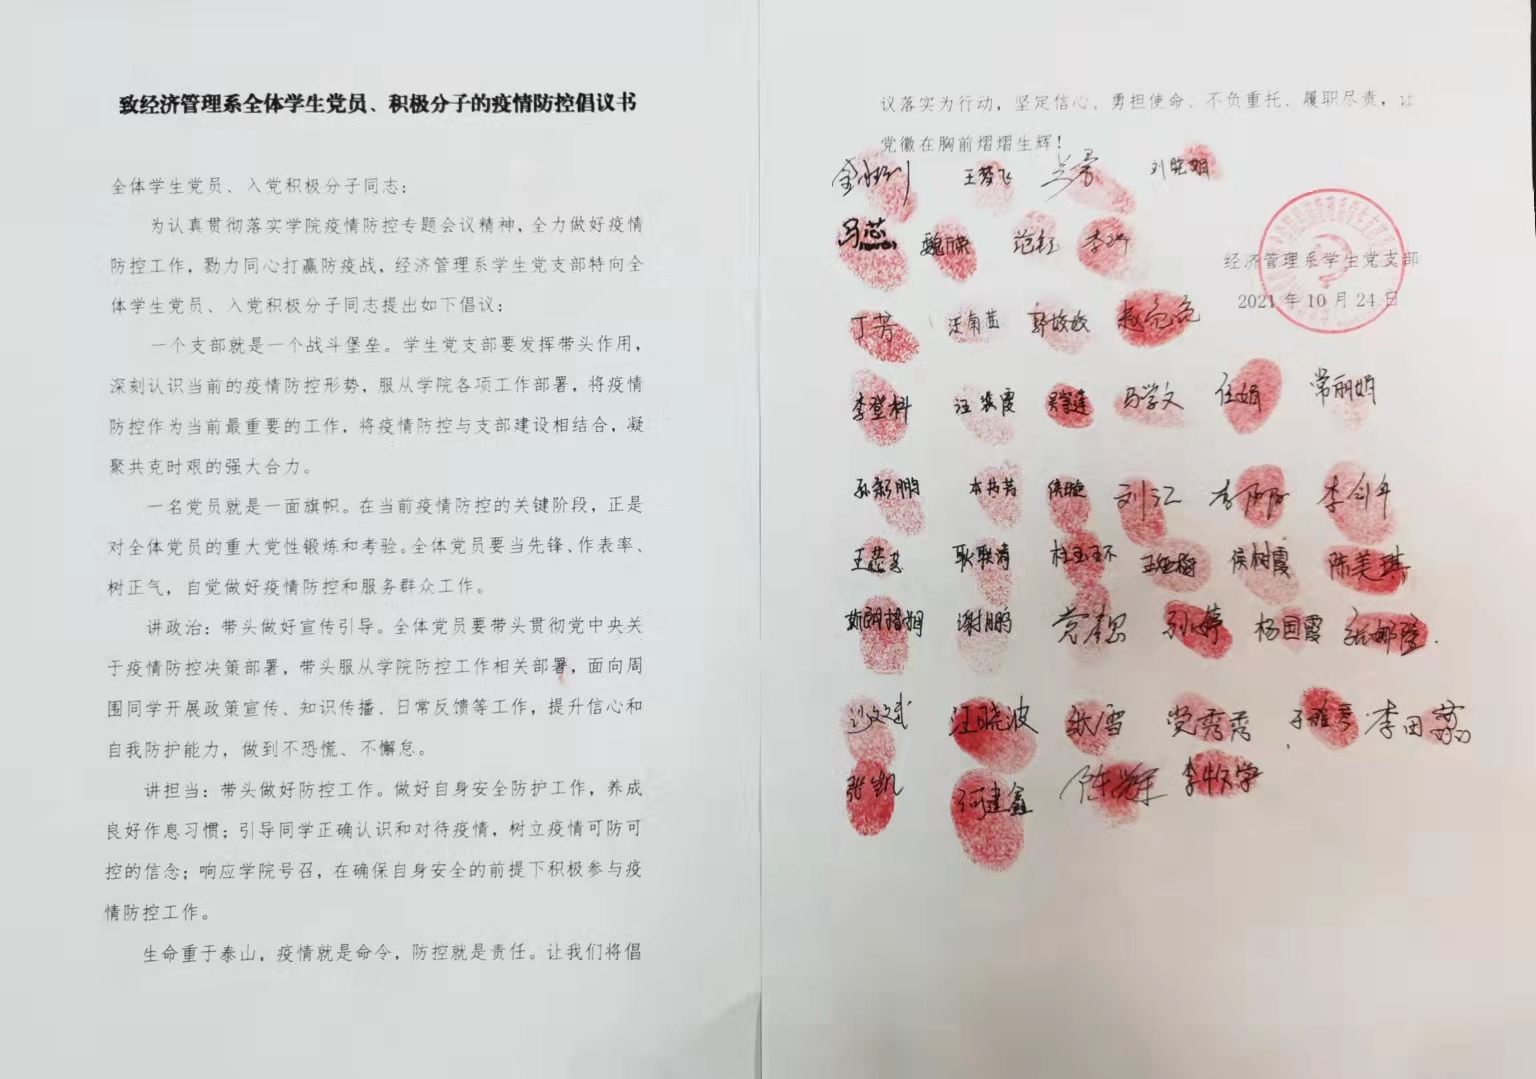 致经济管理系全体学生党员、积极分子的疫情防控倡议书
全体学生党员、入党积极分子同志：
为认真贯彻落实学院疫情防控专题会议精神，全力做好疫情
防控工作，勠力同心打赢防疫战，经济管理系学生党支部特向全
体学生党员、入党积极分子同志提出如下倡议：
一个支部就是一个战斗堡垒。学生党支部要发挥带头作用，
深刻认识当前的疫情防控形势，服从学院各项工作部署，将疫情
防控作为当前最重要的工作，将疫情防控与支部建设相结合，凝
聚共克时艰的强大合力。
一名党员就是一面旗帜。在当前疫情防控的关键阶段，正是
对全体党员的重大党性锻炼和考验。全体党员要当先锋、作表率、
树正气，自觉做好疫情防控和服务群众工作。
讲政治：带头做好宣传引导。全体党员要带头贯彻党中央关
于疫情防控决策部署，带头服从学院防控工作相关部署，面向周
围同学开展政策宣传、知识传播、日常反馈等工作，提升信心和
自我防护能力，做到不恐慌、不懈怠。
讲担当：带头做好防控工作。做好自身安全防护工作，养成
良好作息习惯；引导同学正确认识和对待疫情，树立疫情可防可
控的信念；响应学院号召，在确保自身安全的前提下积极参与疫
情防控工作。
生命重于泰山，疫情就是命令，防控就是责任。让我们将倡
议落实为行动，坚定信心、勇担使命、不负重托、履职尽责，让
党徽在胸前熠熠生辉！
王梦飞 兰芳 刘晓娟
马蕊 范钰
经济管理系学生党支部
2021年10月24日
丁芳 汪菊茜 郭姣姣 赵亮亮
李登科 马学文 任娟 常丽娟
孙彩鹏 侯璇 刘江 李丽丽 李剑年
耿联涛 侯树霞 陈美琪
谢鹏 党靖 孙婷 杨国霞
汪晓波 张雪 党秀秀 李田荔
张凯 何建鑫 陈辉 李牧学